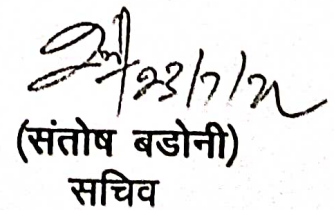 23/7/21
(संतोष बडोनी)
सचिव